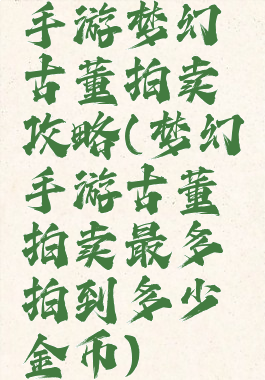 手游梦幻
古董拍卖
攻略(梦幻
手游古董
拍卖最多
拍到多少
金币)